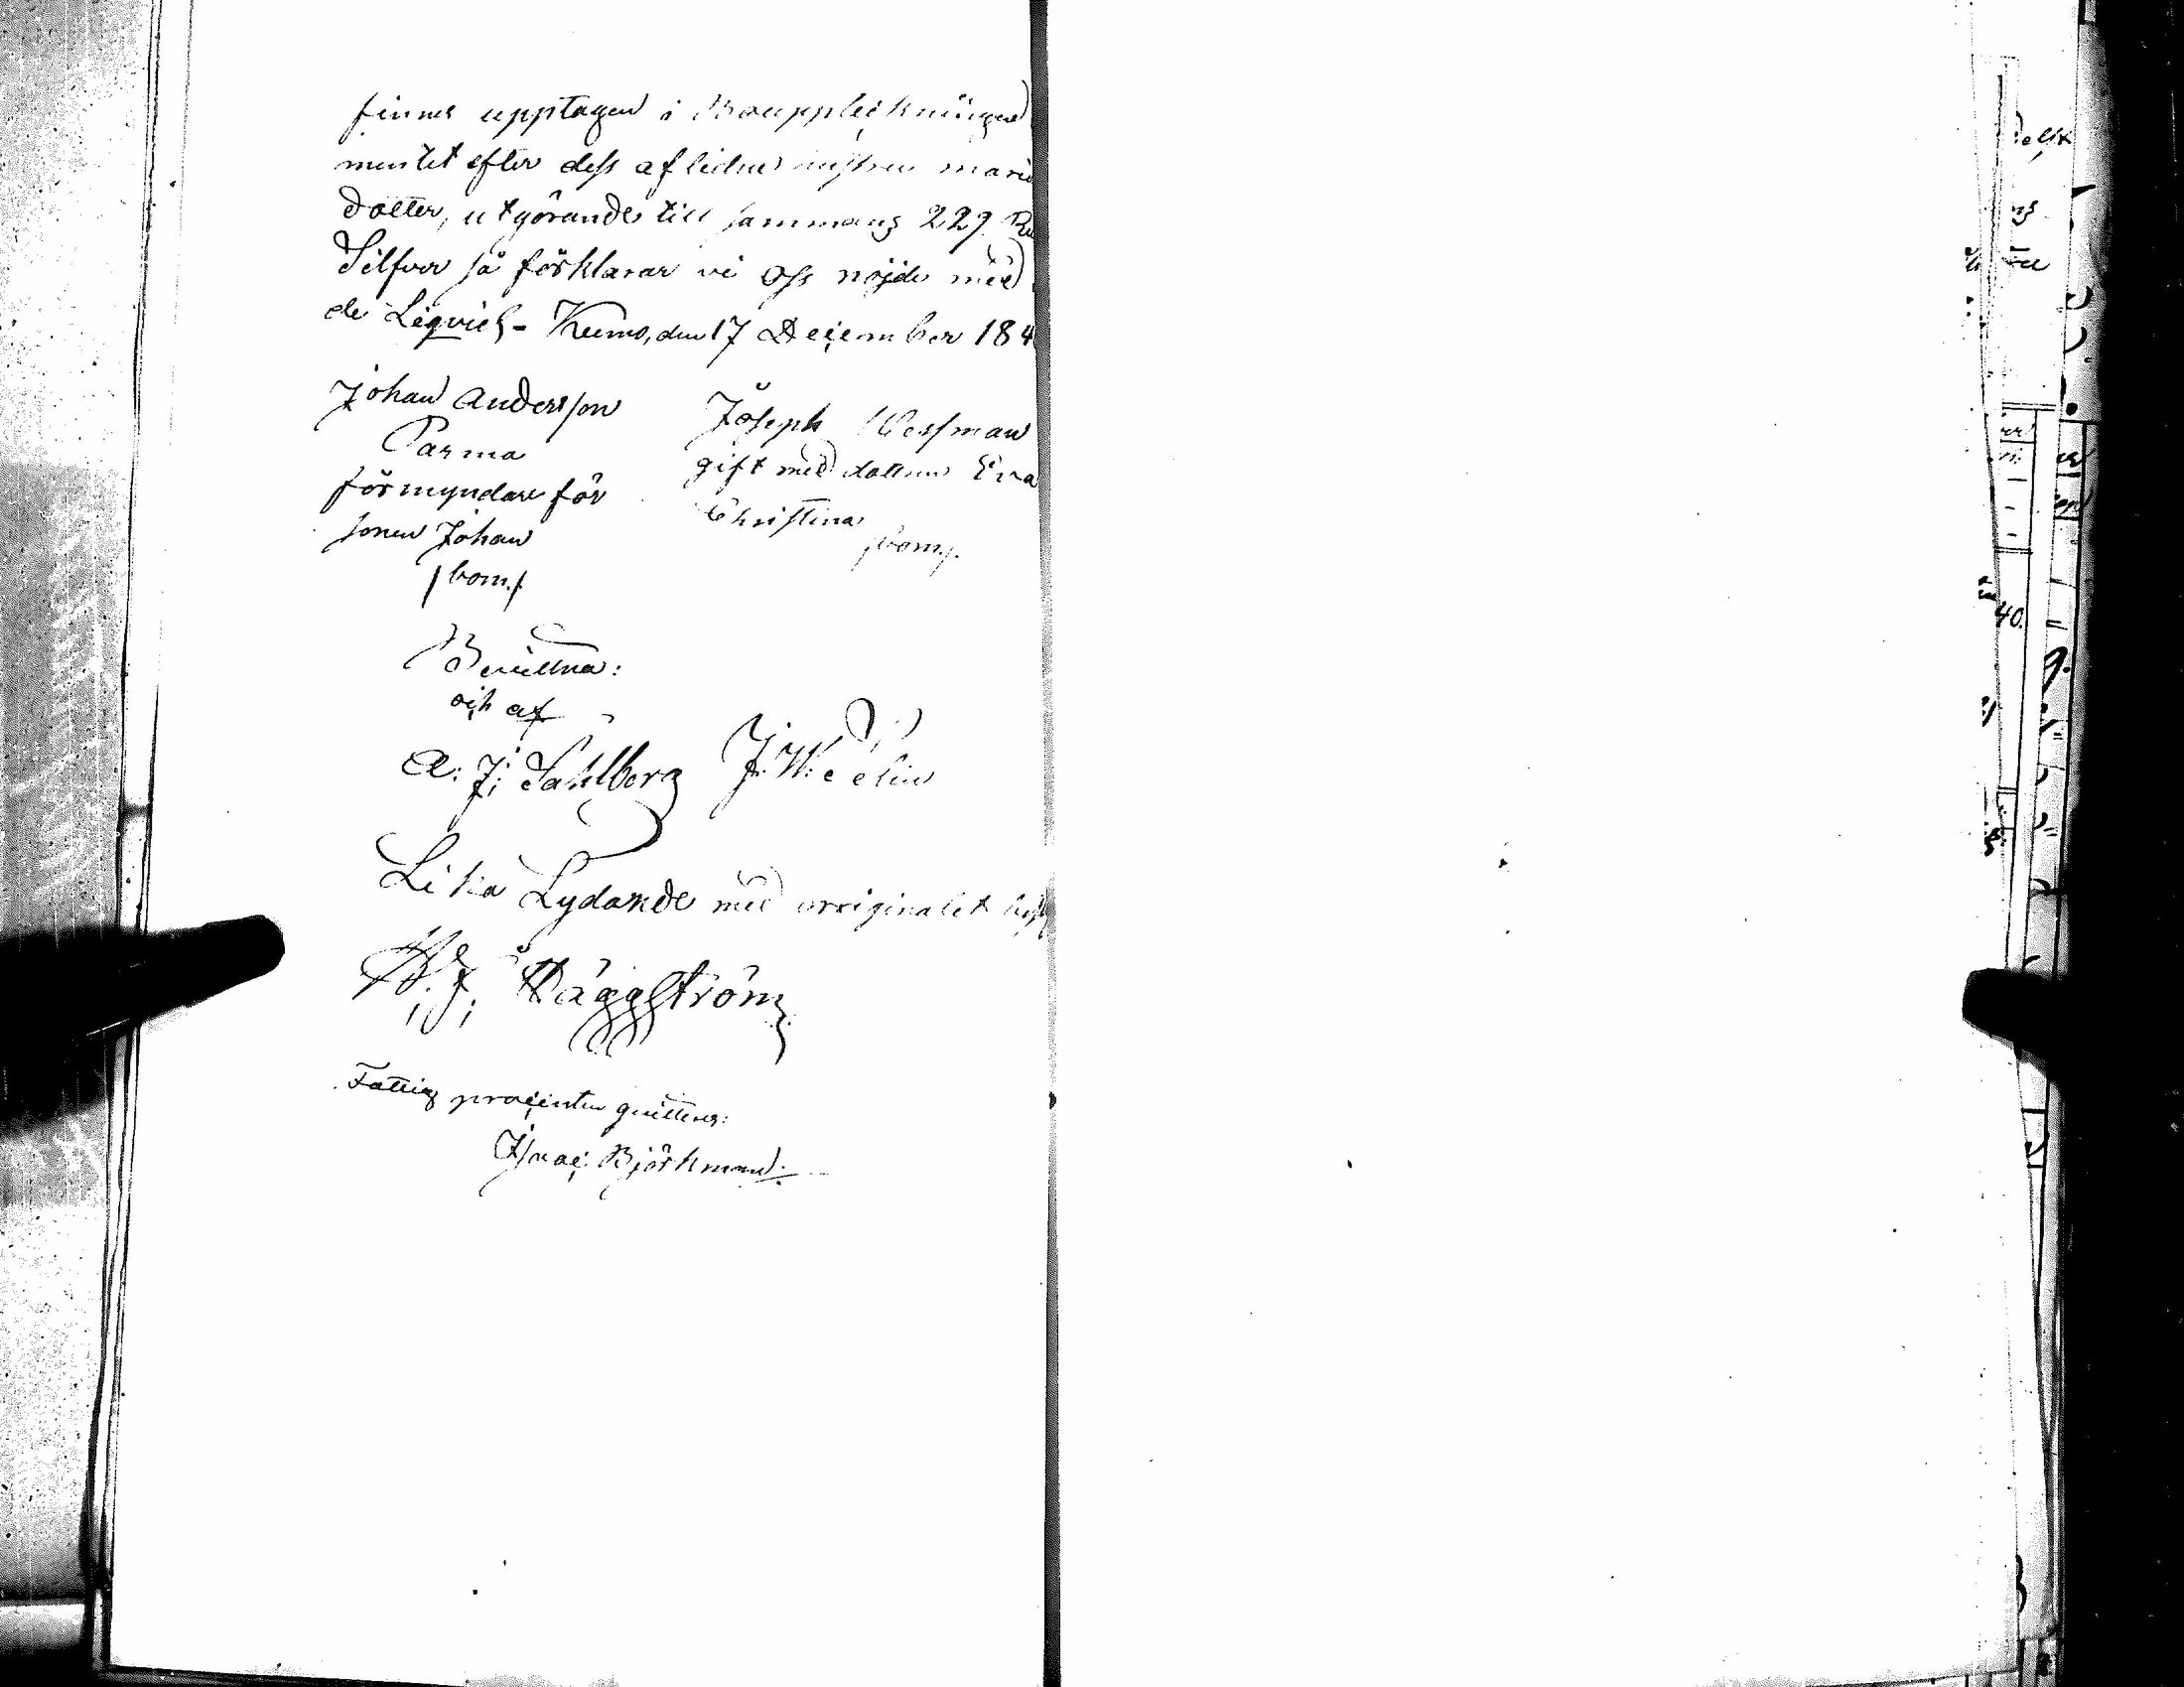 finnes upptagen i Bouppteckningen
mentet efter dess aflidne hustru maria
dotter, utgörande till sammans 229 Ru
Silfver så förklarar vi oss nöjde med
de Liqvid - Kumo, den 17 December 184
Johan Andersson
Parma
förmyndare för
sonen Johan
/bom./
Joseph Wessman
gift med dottren Eva
Christina
/bom./
Bevittna:
och af
A: J: Sahlberg J. W:
Lika Lydande med orriginalet
J: Häggström
Fattig procenten quitteras:
Isaac Björkman